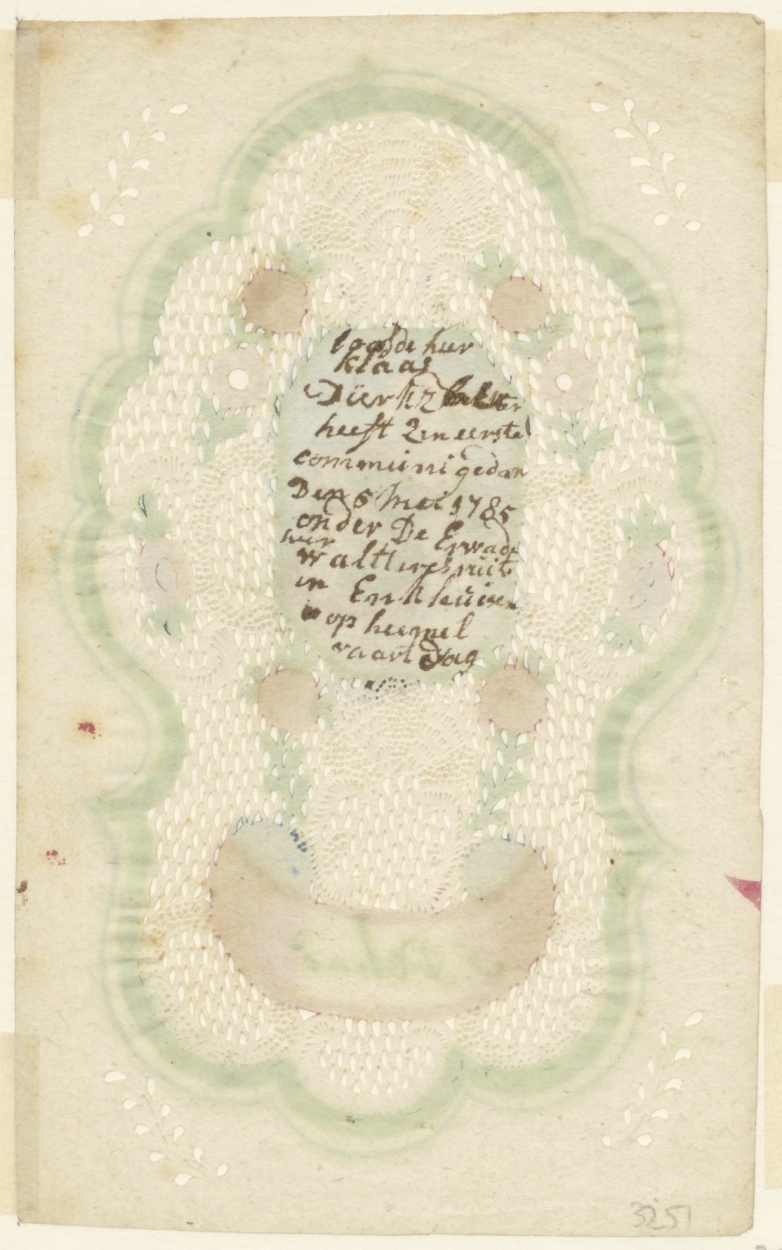 loofde heer
klaas
Dierkz
heeft Zyn eerste
communi gedan
Den 5 mei 1785
onder De Erwade
heer
in Enkhuisen
op heemel
vaart dag
3251